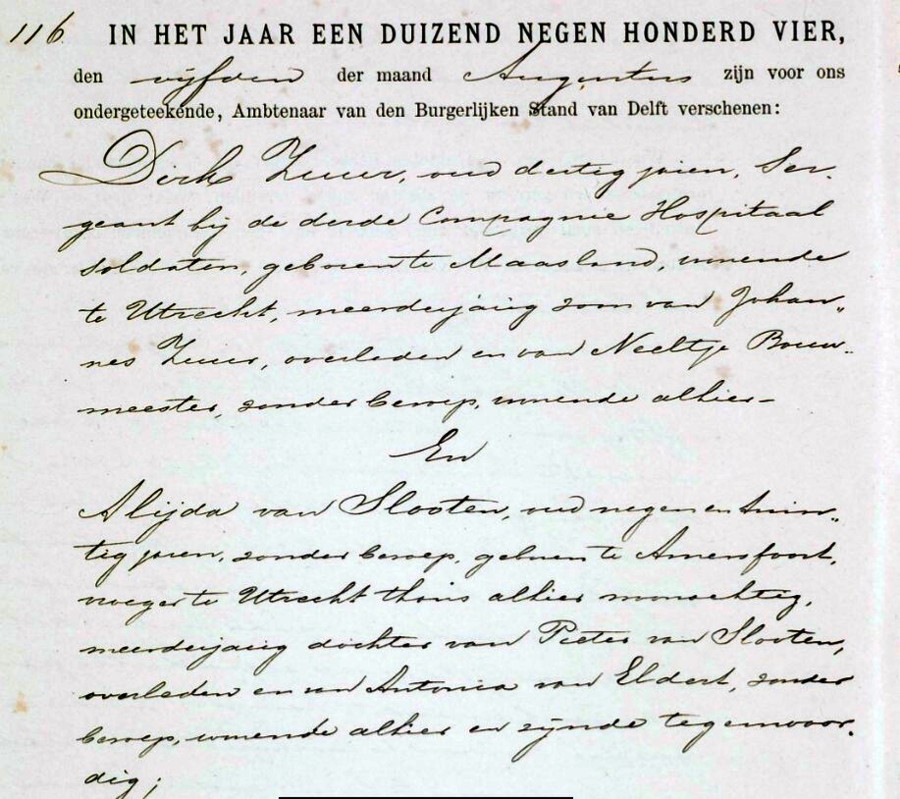 116. IN HET JAAR EEN DUIZEND NEGEN HONDERD VIER,
den vijfden der maand Augustus zijn voor ons
ondergeteekende, Ambtenaar van den Burgerlijken Stand van Delft verschenen:
Dirk Zuur, oud dertig jaren, Ser-
geant bij de derde Compagnie Hospitaal
soldaten, geboren te Maasland, wonende
te Utrecht, meerderjarig zoon van Johan„
nes Zuur, overleden en van Neeltje Bouw-
meester, zonder beroep, wonende alhier –
En
Alijda van Slooten, oud negen en twin„
tig jaren, zonder beroep, geboren te Amersfoort,
vroeger te Utrecht thans alhier woonachtig,
meerderjarig dochter van Pieter van Slooten,
overleden en van Antonia van Eldert, zonder
beroep, wonende alhier en zijnde tegenwoor-
dig;